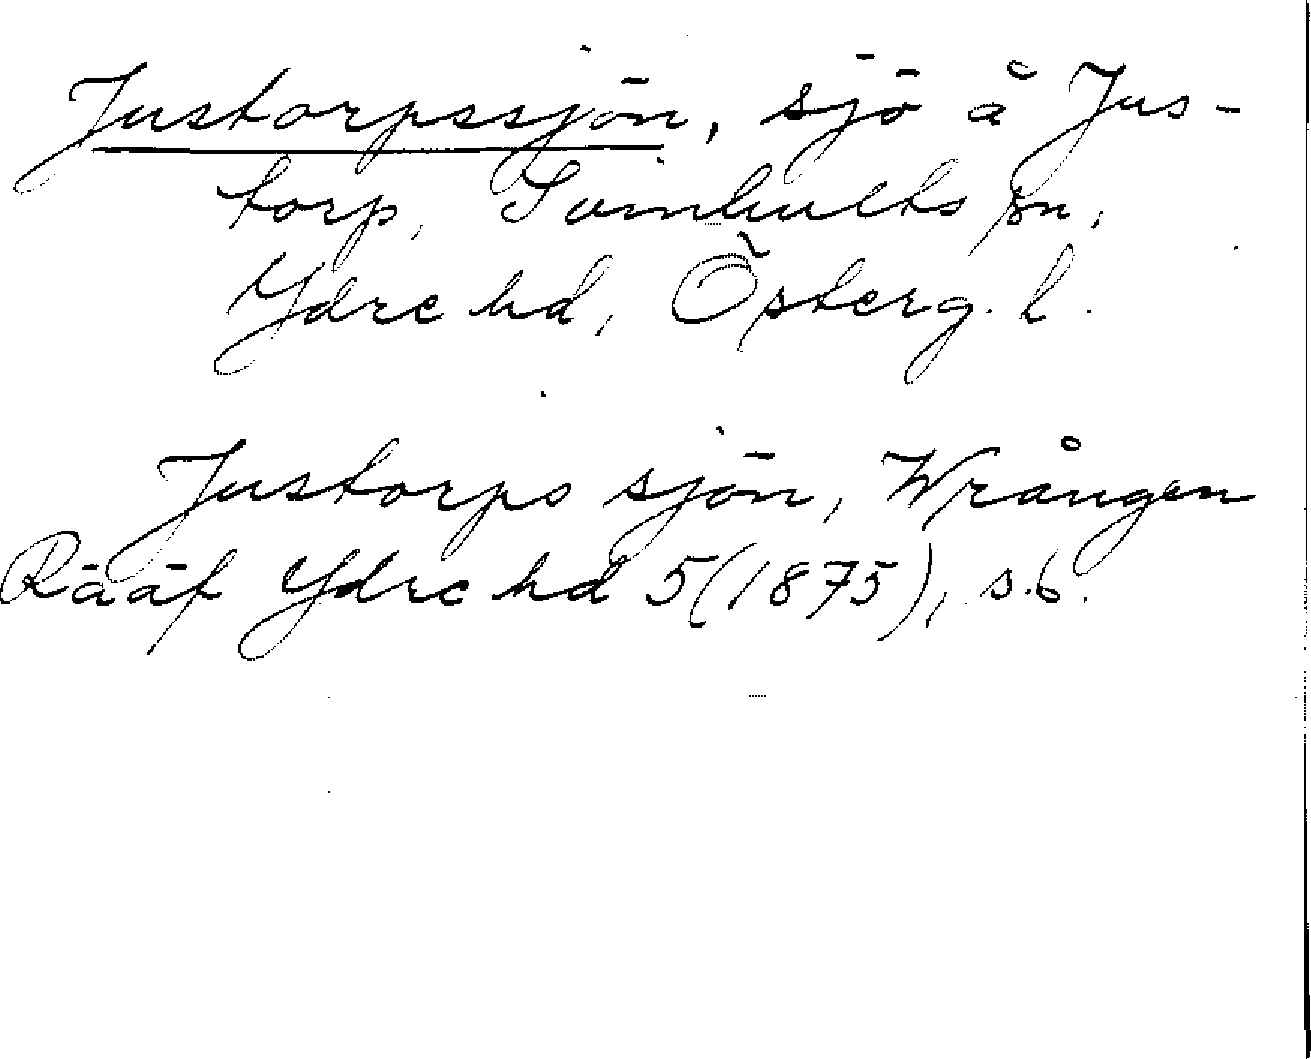 Justorpssjön, sjö å Jus-
torp, Svinhults sn,
Ydre hd, Österg. l.
Justorps sjön, Wrången
Rääf Ydre hd 5(1875), s.6.